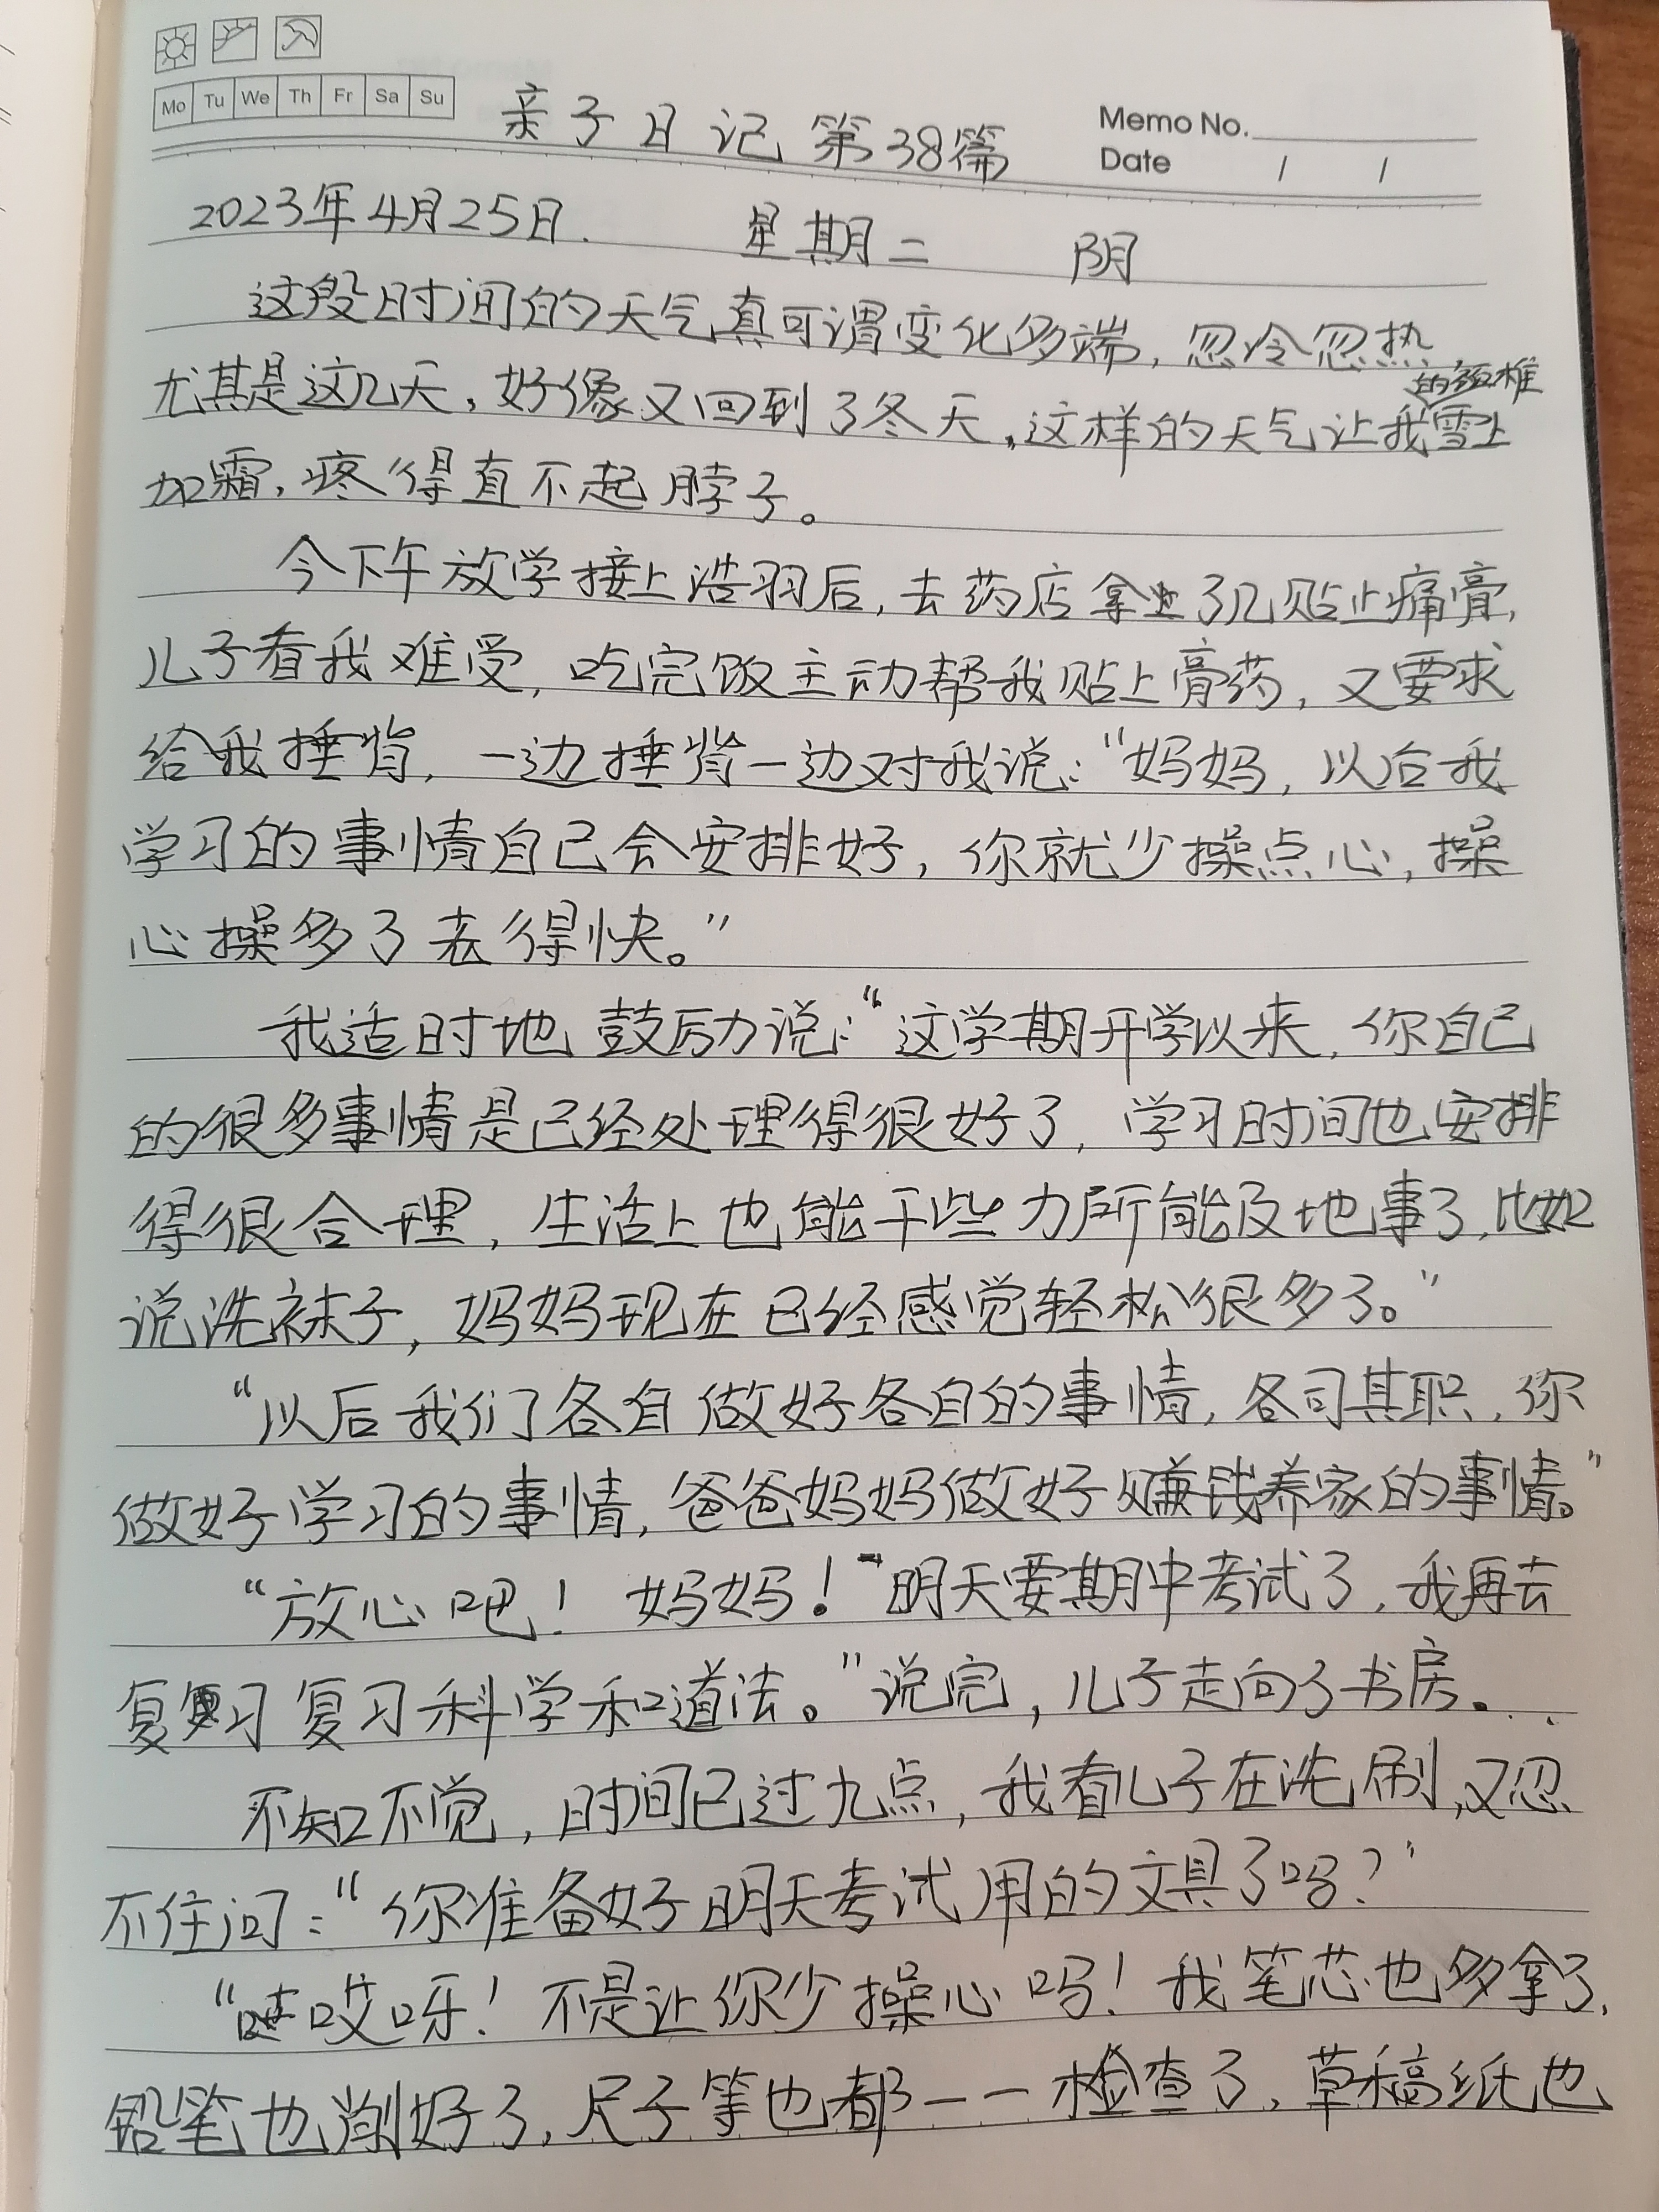 Mo Tu We Th Fr Sa Su
亲子日记 第38篇
Memo No.
Date / /
2023年4月25日. 星期二 阴
这段时间的天气真可谓变化多端,忽冷忽热
的颈椎
尤其是这几天,好像又回到了冬天,这样的天气让我雪上
加霜,疼得直不起脖子。
今下午放学接上浩羽后,去药店拿了几贴止痛膏,
儿子看我难受,吃完饭主动帮我贴上膏药,又要求
给我捶背,一边捶背一边对我说:“妈妈,以后我
学习的事情自己会安排好,你就少操点心,操
心操多了老得快。”
我适时地鼓励说:“这学期开学以来,你自己
的很多事情是已经处理得很好了,学习时间也安排
得很合理,生活上也能干些力所能及地事了,比如
说洗袜子,妈妈现在已经感觉轻松很多了。”
“以后我们各自做好各自的事情,各司其职,你
做好学习的事情,爸爸妈妈做好赚钱养家的事情。”
“放心吧!妈妈!明天要期中考试了,我再去
复习复习科学和道法。”说完,儿子走向了书房。
不知不觉,时间已过九点,我看儿子在洗刷,又忍
不住问:“你准备好明天考试用的文具了吗?”
“哎呀!不是让你少操心吗!我笔芯也多拿了,
铅笔也削好了,尺子等也都一一检查了,草稿纸也